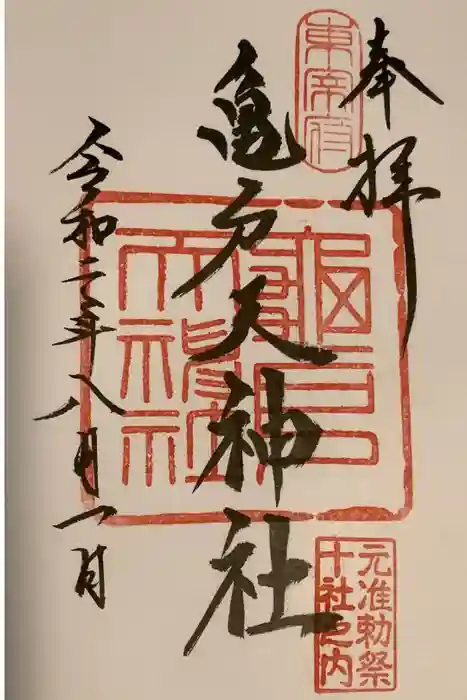 奉拝
東宰府
亀戸天神社
令和二年八月一日
龜戸
天神社
元准勅祭
十社之内